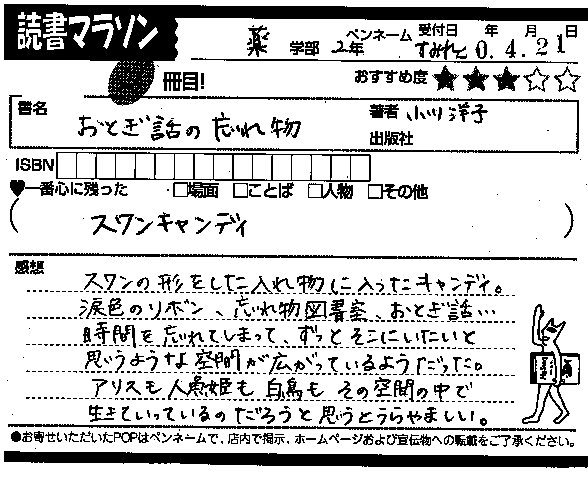 読書マラソン
薬 学部 2年 ペンネーム すみれ 受付日 0年 4月 21日
冊目! おすすめ度 ★★★☆☆
書名 おとぎ話の忘れ物 著者 小川洋子
出版社
ISBN
♥一番心に残った □場面 □ことば □人物 □その他
( スワンキャンディ )
感想
スワンの形をした入れ物に入ったキャンディ。
涙色のリボン、忘れ物図書室、おとぎ話…
時間を忘れてしまって、ずっとそこにいたいと
思うような空間が広がっているようだった。
アリスも人魚姫も白鳥もその空間の中で
生きていっているのだろうと思うとうらやましい。
●お寄せいただいたPOPはペンネームで、店内で掲示、ホームページおよび宣伝物への転載をご了承ください。